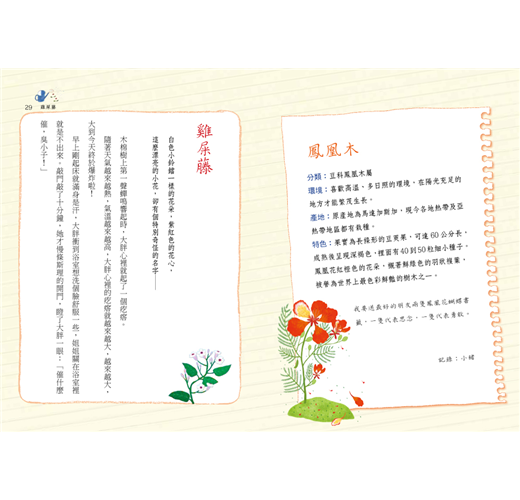 鳳凰木
分類：豆科鳳凰木屬
環境：喜歡高溫、多日照的環境，在陽光充足的
地方才能繁茂生長。
產地：原產地為馬達加斯加，現今各地熱帶及亞
熱帶地區都有栽種。
特色：果實為長條形的豆莢果，可達60公分長，
成熟後呈現深褐色，裡面有40到50粒細小種子。
鳳凰花紅橙色的花朵，襯著鮮綠色的羽狀複葉，
被譽為世界上最色彩鮮豔的樹木之一。
我要送最好的朋友兩隻鳳凰花蝴蝶書
籤，一隻代表思念，一隻代表勇敢。
記錄：小緒
雞屎藤
白色小鈴鐺一樣的花朵，紫紅色的花心，
這麼漂亮的小花，卻有個特別奇怪的名字──
木棉樹上第一聲蟬鳴響起時，大胖心裡就起了一個疙瘩。
隨著天氣越來越熱，氣溫越來越高，大胖心裡的疙瘩就越來越大、越來越大，
大到今天終於爆炸啦！
早上剛起床就滿身是汗，大胖衝到浴室想洗個臉舒服一些，姐姐關在浴室裡
就是不出來，敲門敲了十分鐘，她才慢條斯理的開門，瞪了大胖一眼：「催什麼
催，臭小子！」
29
雞屎藤